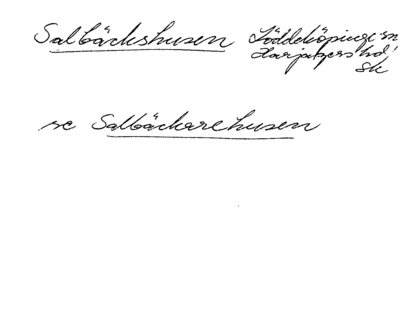 Salbäckshusen Löddeköpinge sn
Harjagers hd
Sk
se Salbäckarehusen